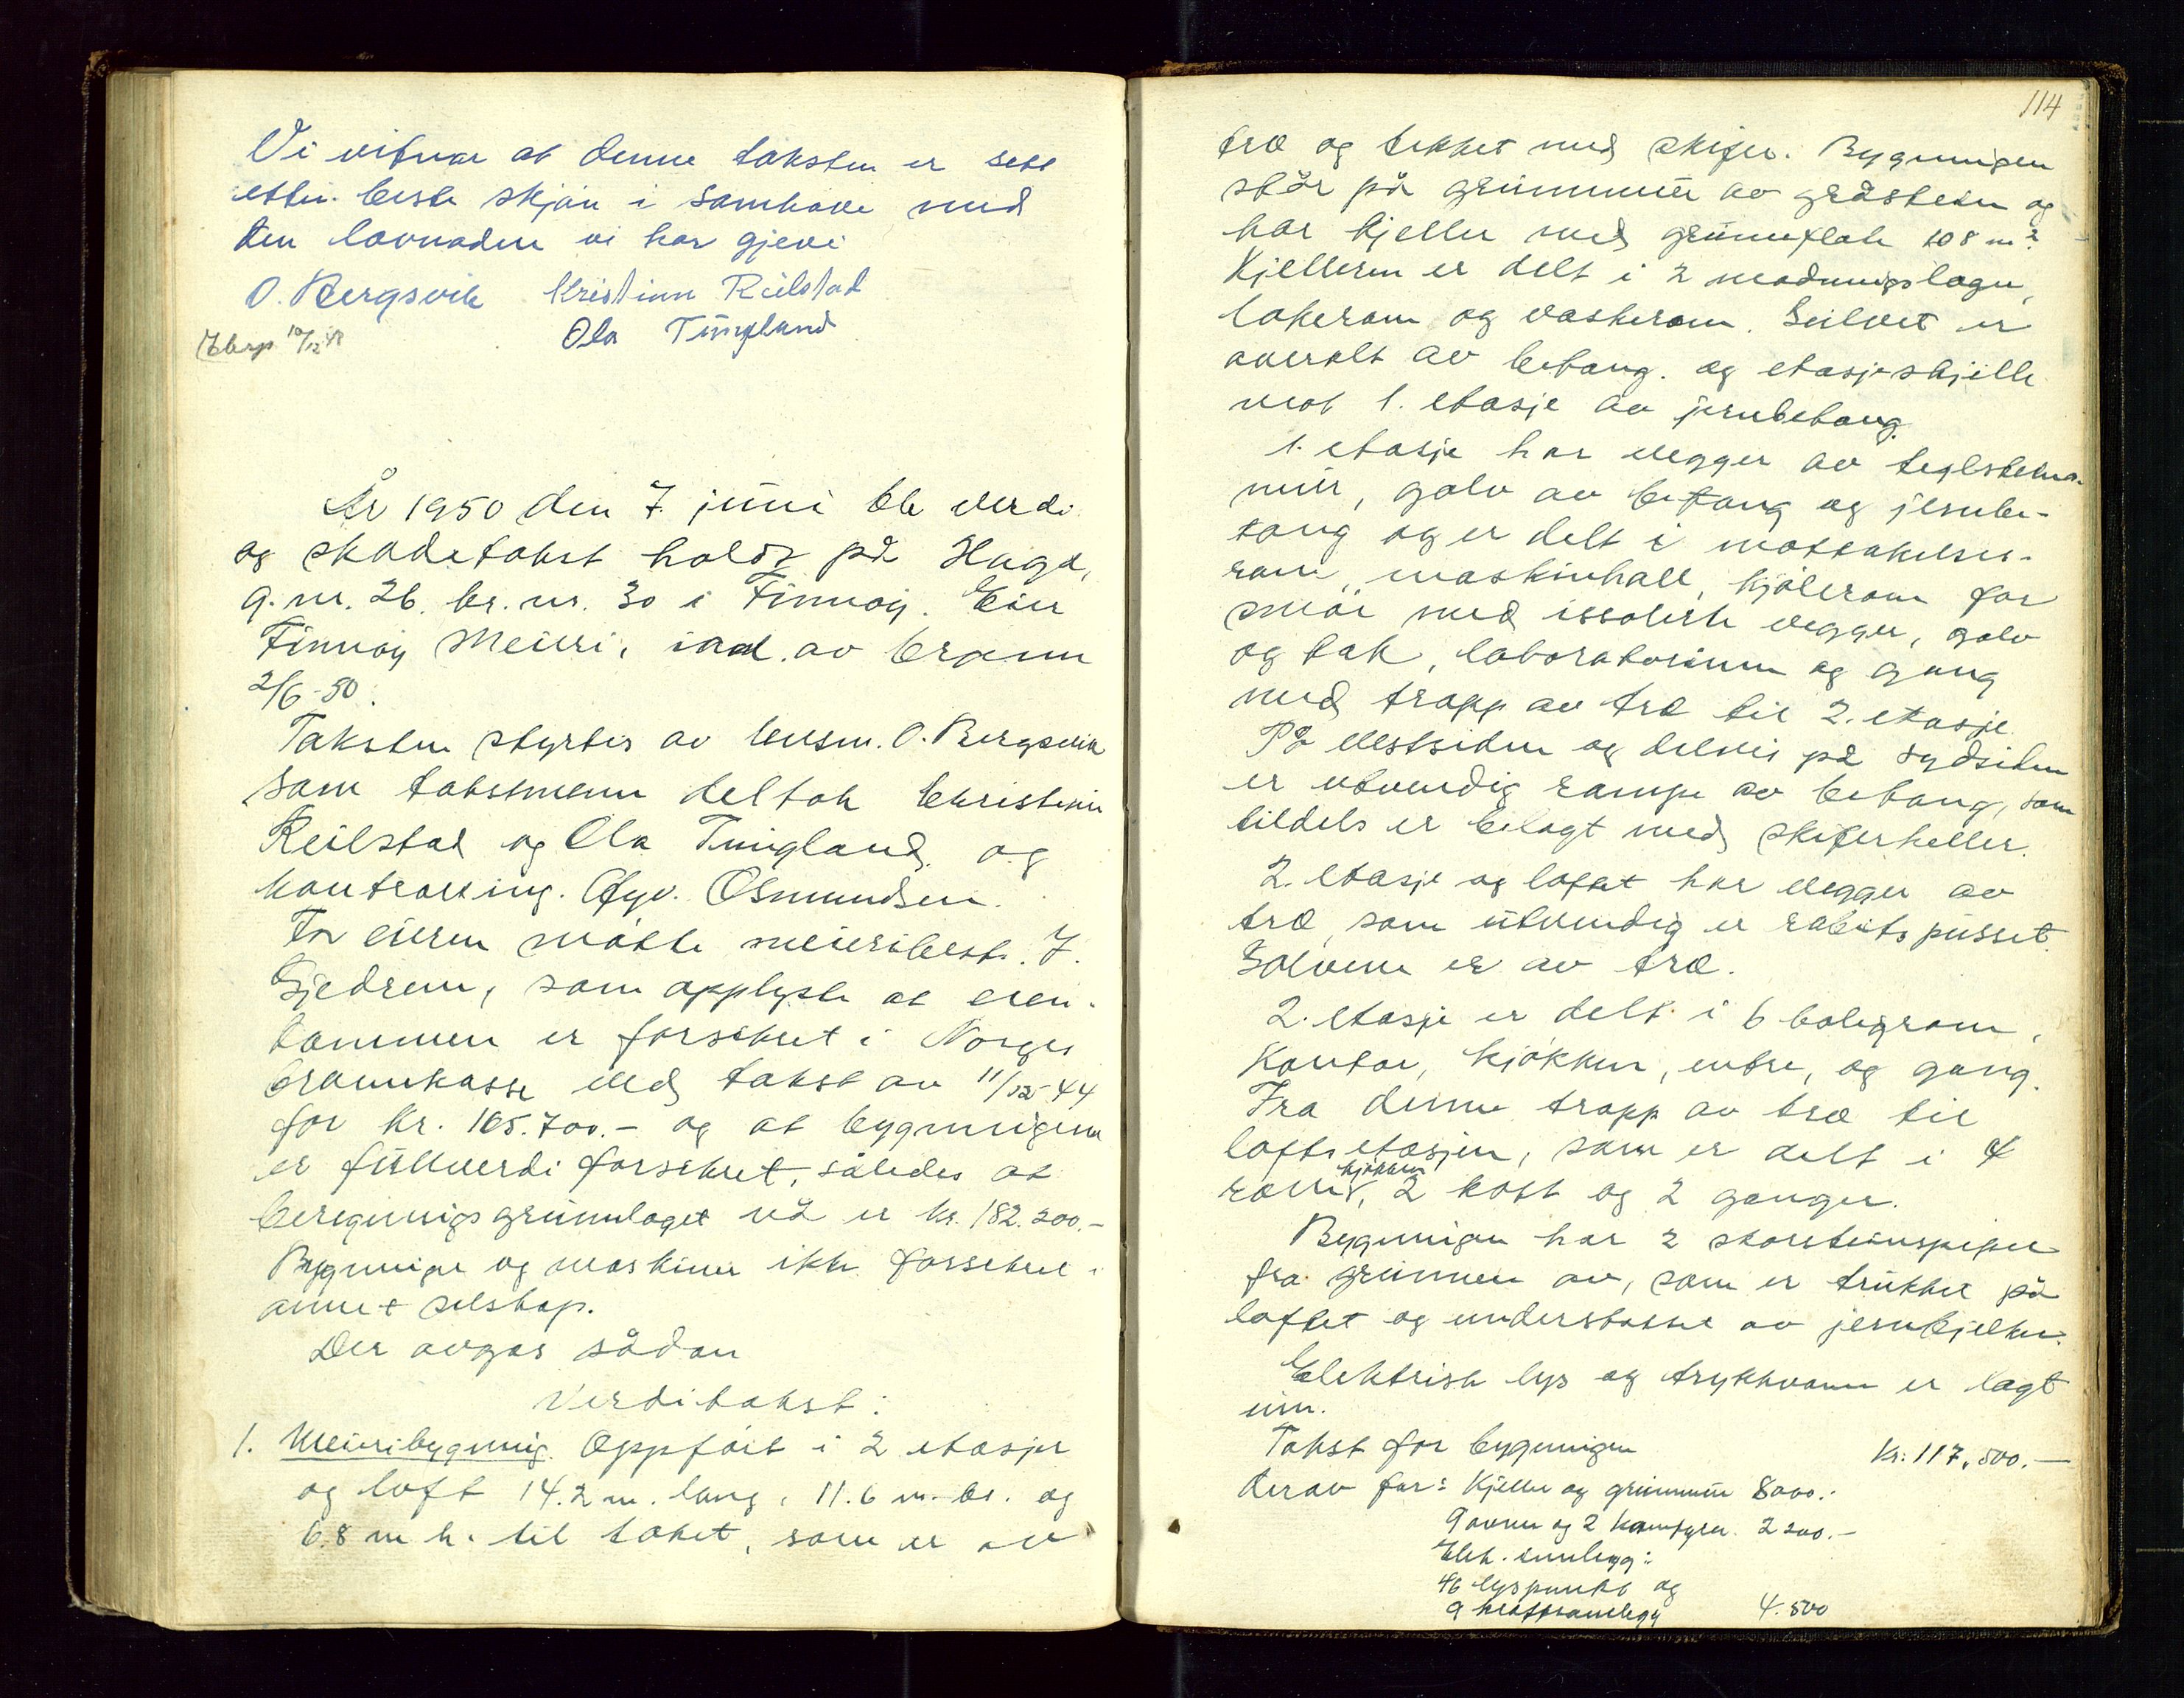 Vi vitnar at denne taksten er sett
etter beste skjøn i samhøve med
den lovnaden vi har gjeve
O. Bergsvik Kristian Reilstad
Ola Tungland
Eksp. 10/12 48
År 1950 den 7. juni ble verdi
og skadetakst holdt på Haga,
g.nr. 26. br.nr. 30 i Finnøy. Eier
Finnøy Meieri, i anl. av brann
2/6-50.
Taksten styrtes av lensm. O. Bergsvik
som takstmenn deltok Christian
Reilstad og Ola Tungland og
kontroling. Osmundsen.
For eieren møtte meieribest. J.
Gjedrem, som opplyste at eien-
dommen er forsikret i Norges
brannkasse ved takst av 11/12-44
for kr. 105.700.- og at bygningene
er fullverdiforsikret, således at
beregningsgrunnlaget nå er kr. 182.200.-
Bygninger og maskiner ikke forsikret i
annet selskap.
Der avgas sådan
Verditakst:
1. Meieribygning. Oppført i 2 etasjer
og loft 14.2 m. lang, 11.6 m. br. og
6.8 m h. til taket, som er av
114
tre og tekket med skifer. Bygningen
står på grunnmur av gråstein og
har kjeller med grunnflate 108 m².
Kjelleren er delt i 2 modningslagre,
lakerom og vaskerom. Gulvet er
overalt av betong. og etasjeskille
mot 1. etasje av jernbetong.
1. etasje har vegger av teglsteins-
mur, golv av betong og jernbe-
tong og er delt i mottakelses-
rom, maskinhall, kjølerom for
smør med issolerte vegger, golv
og tak, laboratorium og gang
med trapp av tre til 2. etasje.
På vestsiden og delvis på sydsiden
er utvendig rampe av betong, som
tildels er belagt med skiferheller.
2. etasje og loftet har vegger av
tre, som utvendig er rabitspusset.
Golvene er av tre.
2. etasje er delt i 6 boligrom,
Kontor, kjøkken, entre, og gang.
Fra denne trapp av tre til
loftsetasjen, som er delt i 4
kjøkken
rom, 2 kott og 2 ganger.
Bygningen har 2 skorsteinspiper
fra grunnen av, som er trukket på
loftet og understøttet av jernbjelker.
Elektrisk lys og trykkvann er lagt
inn.
Takst for bygningen Kr: 117.500.-
derav for: Kjeller og grunnmur 8000.-
9 ovner og 2 komfyrer 2200.-
Elek. innlegg:
46 lyspunkt og
9 4.500